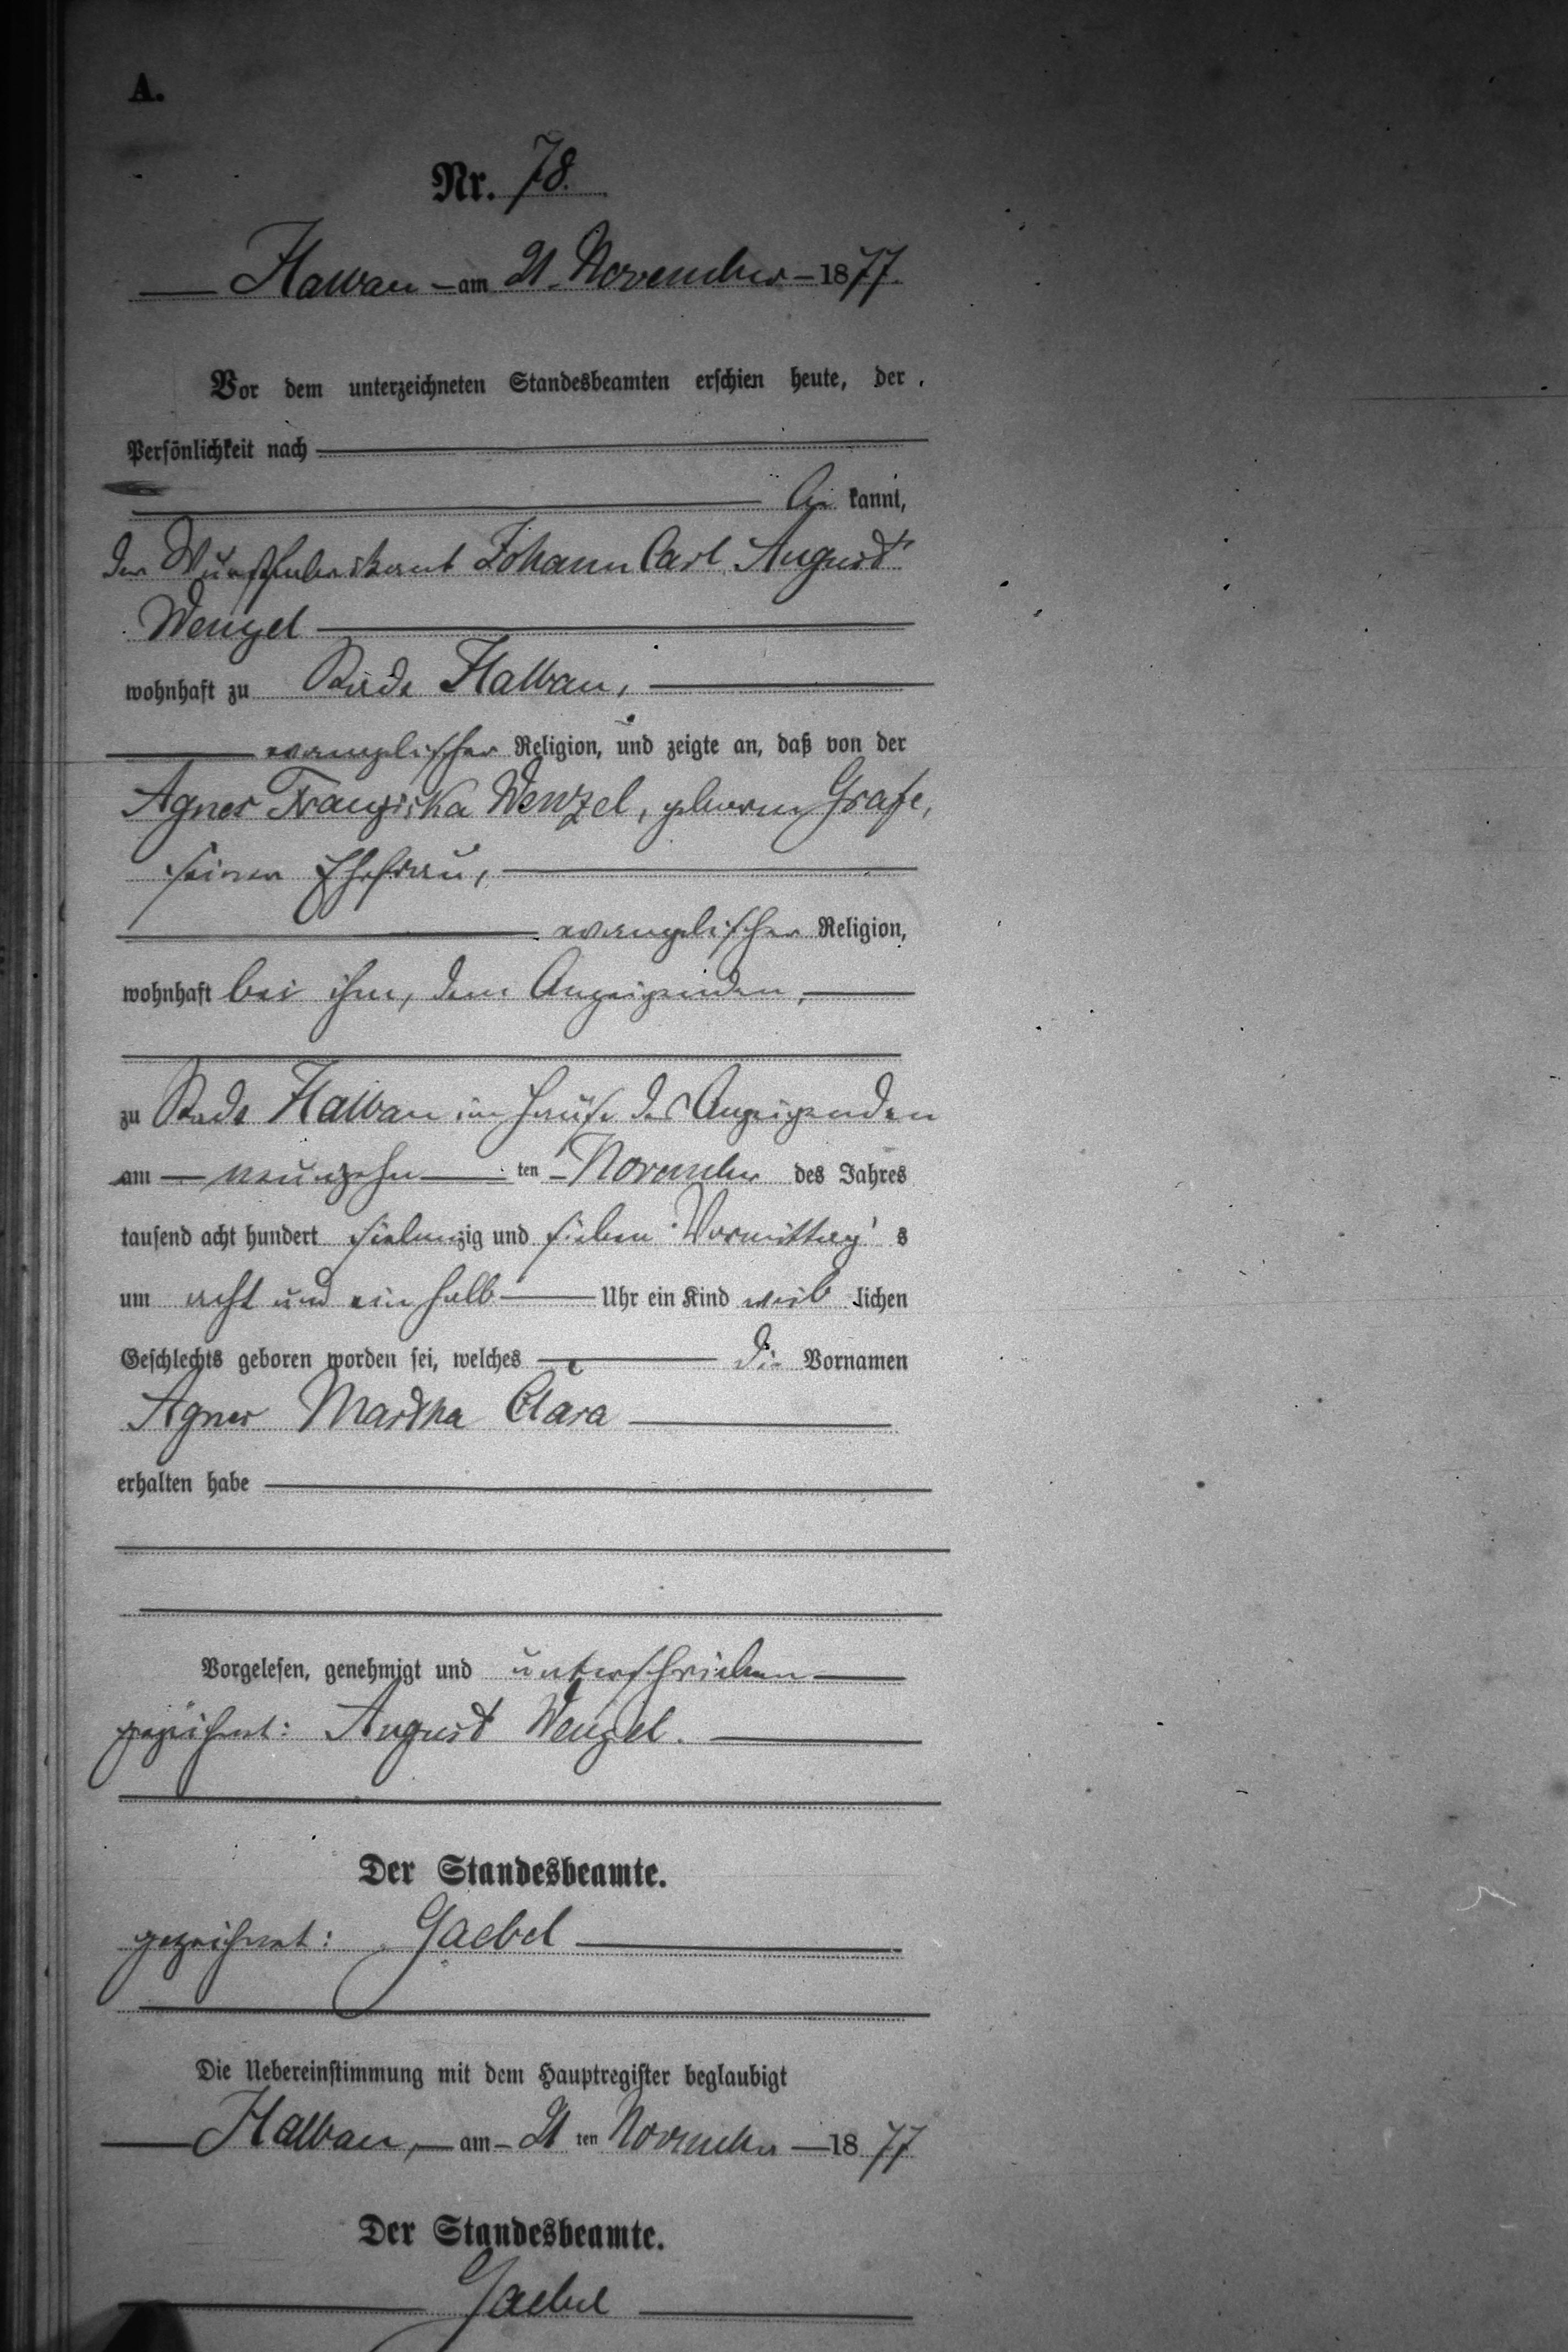 A.
Nr. 78.
Halbau am 21. November 1877.
Vor dem unterzeichneten Standesbeamten erschien heute, der
Persönlichkeit nach
be kannt,
der Wurstfabrikant Johann Carl August
Wenzel
wohnhaft zu Stadt Halbau,
evangelischer Religion, und zeigte an, daß von der
Agnes Franziska Wenzel, geborene Grafe,
seiner Ehefrau,
evangelischer Religion,
wohnhaft bei ihm, dem Anzeigenden,
zu Stadt Halbau im Hause des Anzeigenden
am neunzehn ten November des Jahres
tausend acht hundert siebenzig und sieben Vormittags
um acht und ein halb Uhr ein Kind weib lichen
Geschlechts geboren worden sei, welches die Vornamen
Agnes Martha Clara
erhalten habe
Vorgelesen, genehmigt und unterschrieben
gezeichnet: August Wenzel.
Der Standesbeamte.
gezeichnet: Gaebel
Die Uebereinstimmung mit dem Hauptregister beglaubigt
Halbau, am 21 ten November 1877
Der Standesbeamte.
Gaebel